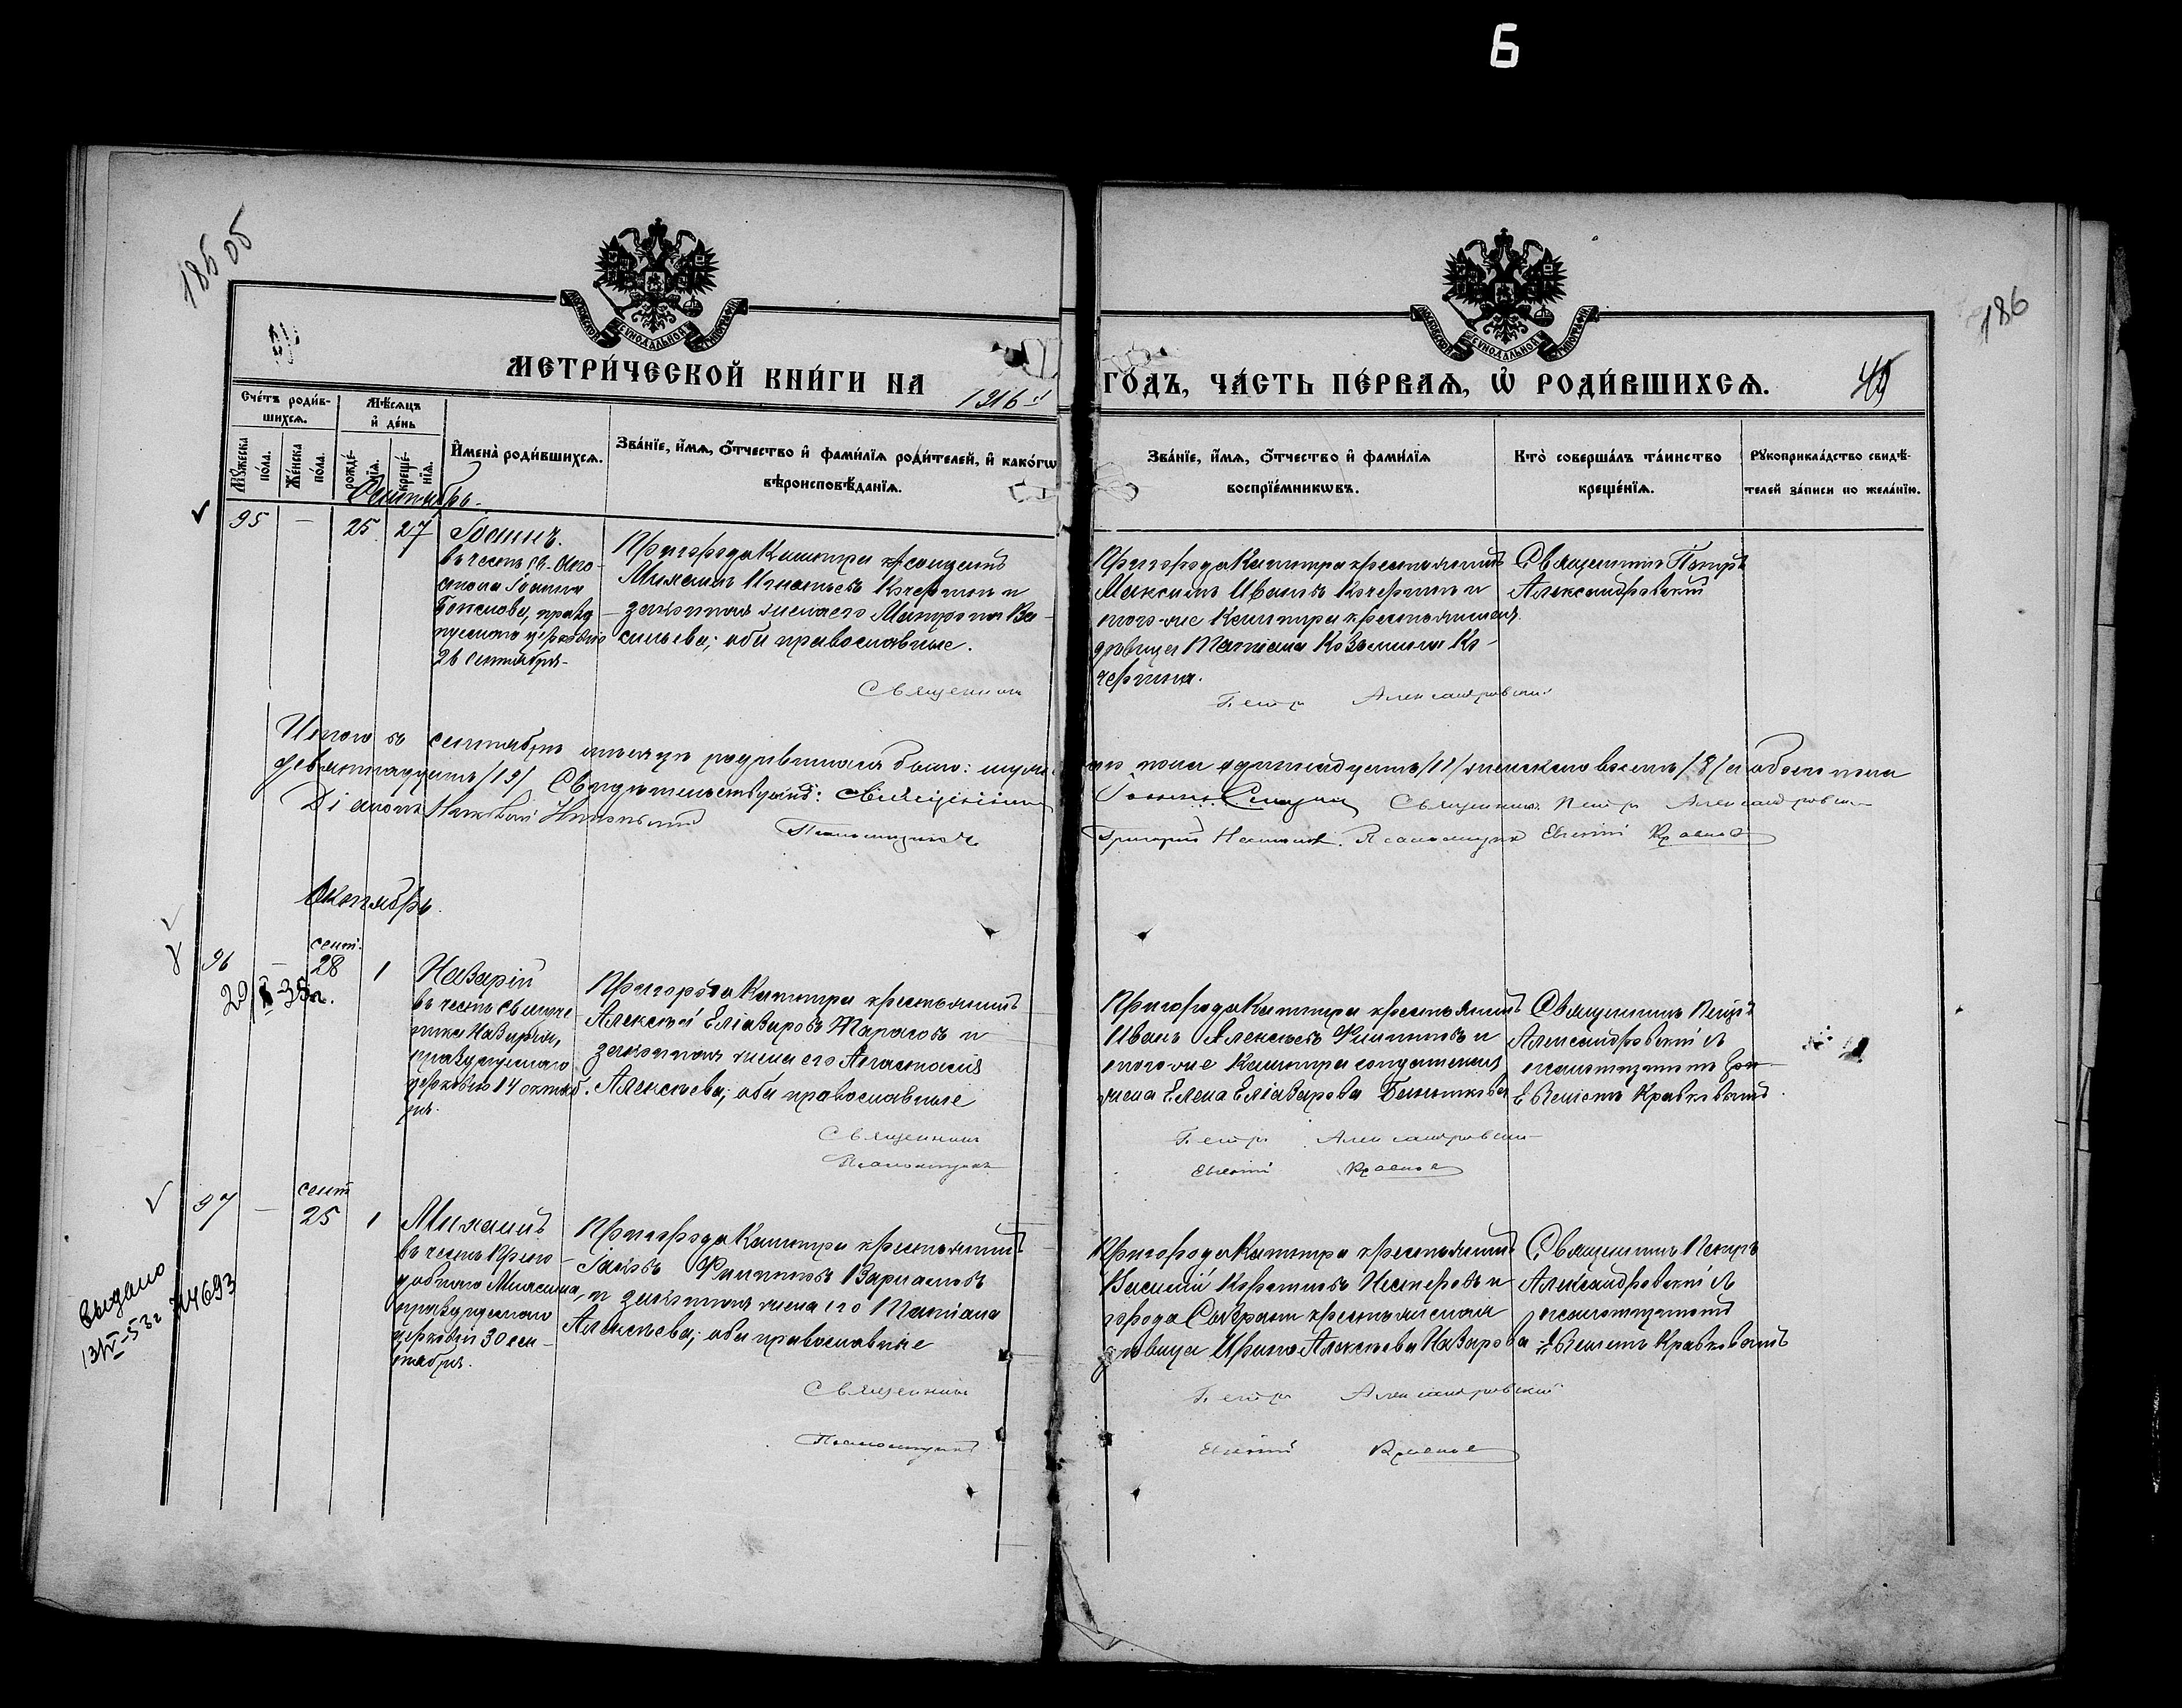 Б
185 об
186
МЕТРИ́ЧЕСКОЙ КНИ́ГИ НА 1916 й
ГО́ДЪ, ЧА́СТЬ ПЕ́РВАѦ, Ѡ҆ РОДИ́ВШИХСѦ.
49
Сче́тъ роди́в-
шихсѧ.
Мѣ́сѧцъ
и҆ де́нь
Мꙋ́жеска
по́ла.
Же́нска
по́ла.
рожде́-
нїѧ.
креще́-
нїѧ.
И҆мена̀ роди́вшихсѧ.
Зва́нїе, и҆́мѧ, ѻ҆́тчество и҆ фами́лїѧ роди́телей, и҆ како́гѡ
вѣроисповѣ́данїѧ.
Зва́нїе, и҆́мѧ, ѻ҆́тчество и҆ фами́лїѧ
воспрїе́мникѡвъ.
Кто̀ соверша́лъ та́инство
креще́нїѧ.
Рꙋкоприкла́дство свидѣ́-
телей за́писи по жела́нїю.
Сентябрь.
95 — 25 27 Іоаннъ.
въ честь св. Апо-
стола Іоанна
Богослова, празд
нуемаго церковію
26 сентября
Пригорода Кашпира
Игнатьевъ Кочергинъ и
законная жена его Матрона Ва-
сильева; оба православные.
Священникъ
Пригорода Кашпира крестьянинъ
Максимъ Ивановъ Кочергинъ и
того-же Кашпира крестьянская
дѣвица Татіана Козьмина Ко-
чергина.
Петръ Александровскій
Священникъ Петръ
Александровскій
Итого въ сентябрѣ мѣсяцѣ родившихся было: муже-
скаго пола одиннадцать /11/ женскаго восемь /8/ а обоего пола
девятнадцать /19/ Свидѣтельствуютъ: Священникъ
Іоаннъ Священникъ Петръ Александровскій
Діаконъ Никольскій Псаломщикъ
Григорій Псаломщикъ Евгеній
Октябрь.
96 — сент. 28 1 Назарій
29 35 г.
въ честь св. муче-
ника Назарія,
празднуемаго
церковію 14 октяб-
ря.
Пригорода Кашпира крестьянинъ
Алексѣй Еліазаровъ Тарасовъ и
законная жена его Анастасія
Алексѣева; оба православные
Священникъ
Псаломщикъ
Пригорода Кашпира крестьянинъ
Иванъ Алексѣевъ Филипповъ и
того-же Кашпира солдатская
жена Елена Еліазарова
Петръ Александровскій
Евгеній
Священникъ Петръ
Александровскій съ
псаломщикомъ
Евгеніемъ
97 — сент 25 1 Михаилъ
въ честь Препо-
добнаго Михаила,
празднуемаго
церковію 30 сен-
тября.
выдано
13/IV-53г 744693
Пригорода Кашпира крестьянинъ
Іаковъ Филипповъ Варламовъ
и законная жена его Татіана
Алексѣева; оба православные
Священникъ
Псаломщикъ
Пригорода Кашпира крестьянинъ
Василій Нестеровъ и
города Сызрани крестьянская
дѣвица Ирина Алексѣева Назарова
Петръ Александровскій
Евгеній
Священникъ Петръ
Александровскій съ
псаломщикомъ
Евгеніемъ